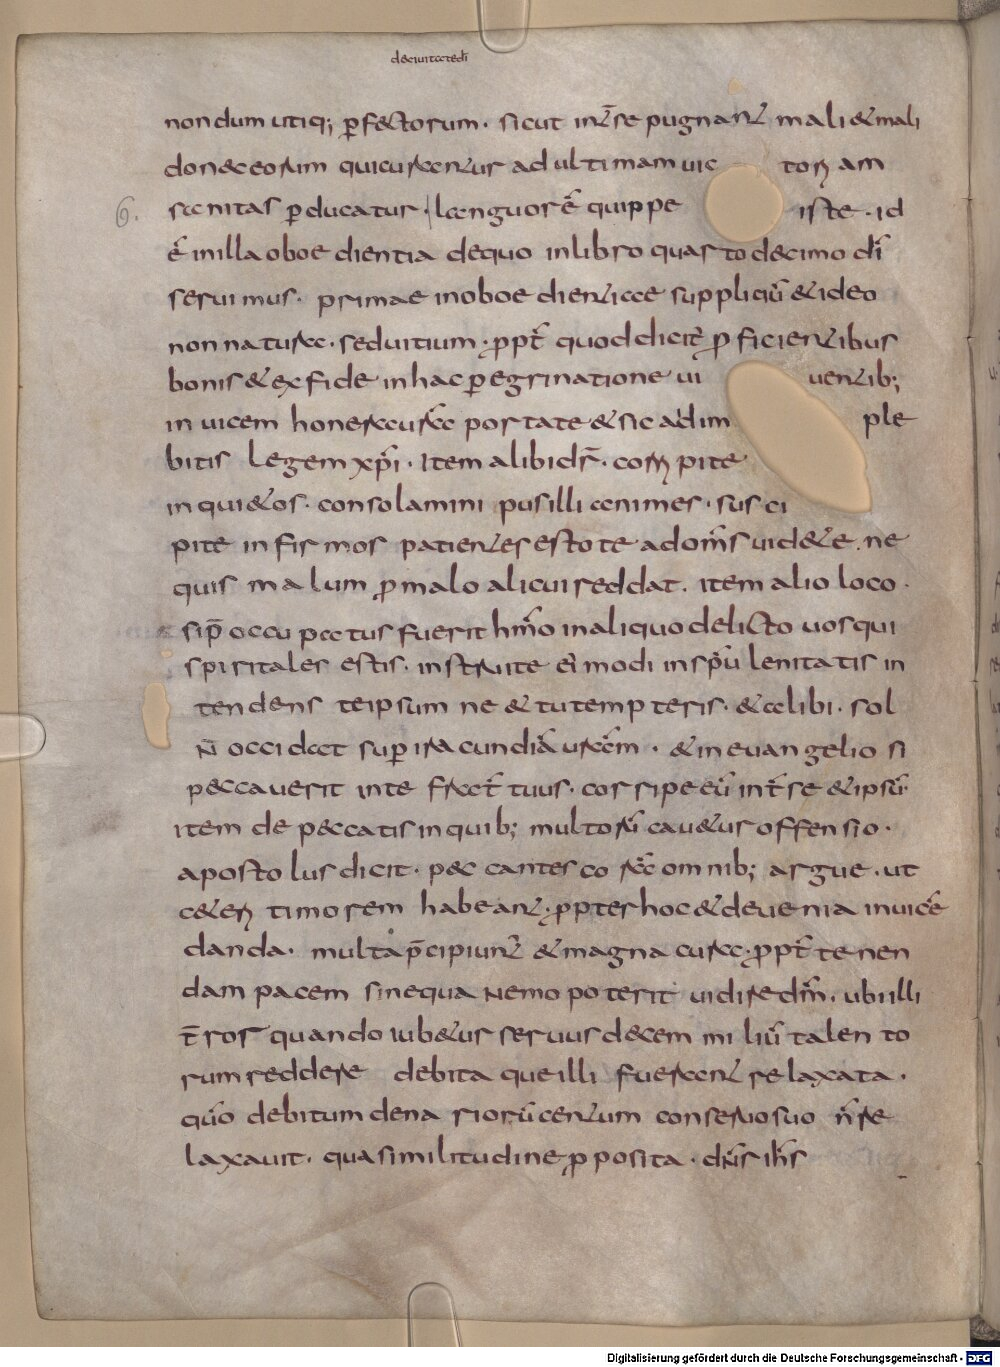 deciuitatedi
nondum utiq; pfectorum. sicut int̄se pugnant mali & mali
donec eorum qui curantur ad ultimam uic toriam
6. sanitas pducatur. languor ē quippe iste. id
ē inilla oboedientia dequo inlibro quarto decimo dis
seruimus. primae inoboedientiae suppliciū & ideo
non natura. sed uitium. ppt̄ quod dicit̄ proficientibus
bonis & exfide inhac peregrinatione ui uentib;
in uicem honera ur̄a portate & sic adim ple
bitis legem xp̄i. Item alibi dr̄. corripite
inquietos. consolamini pusillianimes. susci
pite infirmos patientes estote adom̄s uidete. ne
quis malum pro malo alicui reddat. item alio loco.
sip̄occupatus fuerit hm̄o inaliquo delicto uosqui
spiritales estis. instruite ei modi insp̄u lenitatis in
tendens teipsum ne & tutempteris. & alibi. sol
N̄ occidat sup iracundiā ur̄am. & in euangelio si
peccauerit inte frat̄ tuus. corripe eū int̄se & ipsū.
item de peccatis inquib; multorū cauetur offensio.
apostolus dicit. peccantes corā omnib; argue. ut
ceteri timorem habeant. ppter hoc & deuenia inuicē
danda. multa p̄cipiunt̄ & magna cura. ppt̄ tenen
dam pacem sinequa Nemo poterit uidire dm̄. ubi illi
t̄ror quando iubetur seruus decem miliū talento
rum reddere debita que illi fuerant relaxata.
qūo debitum denariorū centum conseruosuo n̄re
laxauit. quasimilitudine pro posita. dn̄s ih̄s
Digitalisierung gefördert durch die Deutsche Forschungsgemeinschaft - DFG